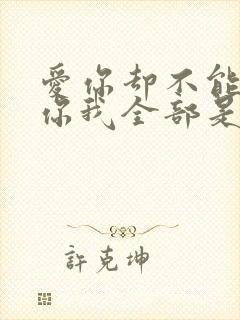 愛你却不能
你我全部是
許克坤